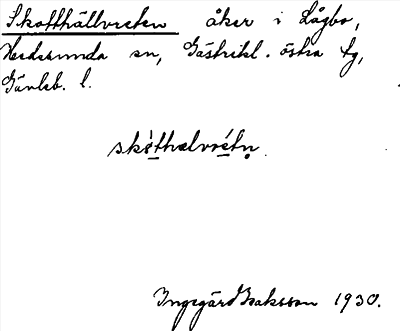 Skotthällvreten åker i Lågbo,
Hedesunda sn, Gästrikl. östra tg,
Gävleb. l.
skòthælvrétn̥.
Ingegärd Isaksson 1930.